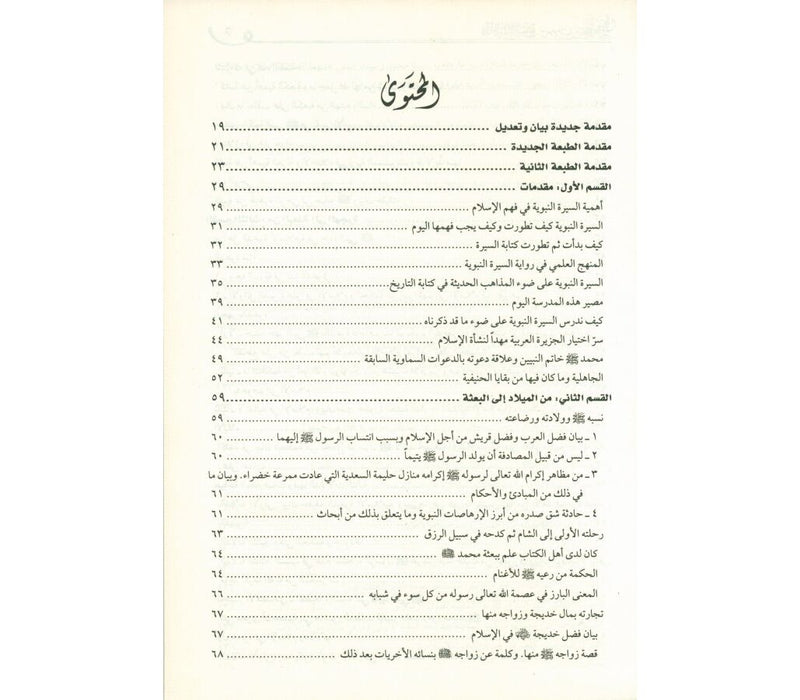 المحتوى
مقدمة جديدة بيان وتعديل ........ ١٩
مقدمة الطبعة الجديدة ........ ٢١
مقدمة الطبعة الثانية ........ ٢٣
القسم الأول: مقدمات ........ ٢٩
أهمية السيرة النبوية في فهم الإسلام ........ ٢٩
السيرة النبوية كيف تطورت وكيف يجب فهمها اليوم ........ ٣١
كيف بدأت ثم تطورت كتابة السيرة ........ ٣٢
المنهج العلمي في رواية السيرة النبوية ........ ٣٣
السيرة النبوية على ضوء المذاهب الحديثة في كتابة التاريخ ........ ٣٥
مصير هذه المدرسة اليوم ........ ٣٩
كيف ندرس السيرة النبوية على ضوء ما قد ذكرناه ........ ٤١
سرّ اختيار الجزيرة العربية مهداً لنشأة الإسلام ........ ٤٤
محمد ﷺ خاتم النبيين وعلاقة دعوته بالدعوات السماوية السابقة ........ ٤٩
الجاهلية وما كان فيها من بقايا الحنيفية ........ ٥٢
القسم الثاني: من الميلاد إلى البعثة ........ ٥٩
نسبه ﷺ وولادته ورضاعته ........ ٥٩
١ ـ بيان فضل العرب وفضل قريش من أجل الإسلام وبسبب انتساب الرسول ﷺ إليهما ........ ٦٠
٢ ـ ليس من قبيل المصادفة أن يولد الرسول ﷺ يتيماً ........ ٦٠
٣ ـ من مظاهر إكرام الله تعالى لرسوله ﷺ إكرامه منازل حليمة السعدية التي عادت ممرعة خضراء. وبيان ما
في ذلك من المبادئ والأحكام ........ ٦١
٤ ـ حادثة شق صدره من أبرز الإرهاصات النبوية وما يتعلق بذلك من أبحاث ........ ٦١
رحلته الأولى إلى الشام ثم كدحه في سبيل الرزق ........ ٦٣
كان لدى أهل الكتاب علم ببعثة محمد ﷺ ........ ٦٤
الحكمة من رعيه ﷺ للأغنام ........ ٦٤
المعنى البارز في عصمة الله تعالى رسوله من كل سوء في شبابه ........ ٦٦
تجارته بمال خديجة وزواجه منها ........ ٦٧
بيان فضل خديجة في الإسلام ........ ٦٧
قصة زواجه ﷺ منها. وكلمة عن زواجه ﷺ بنسائه الأخريات بعد ذلك ........ ٦٨